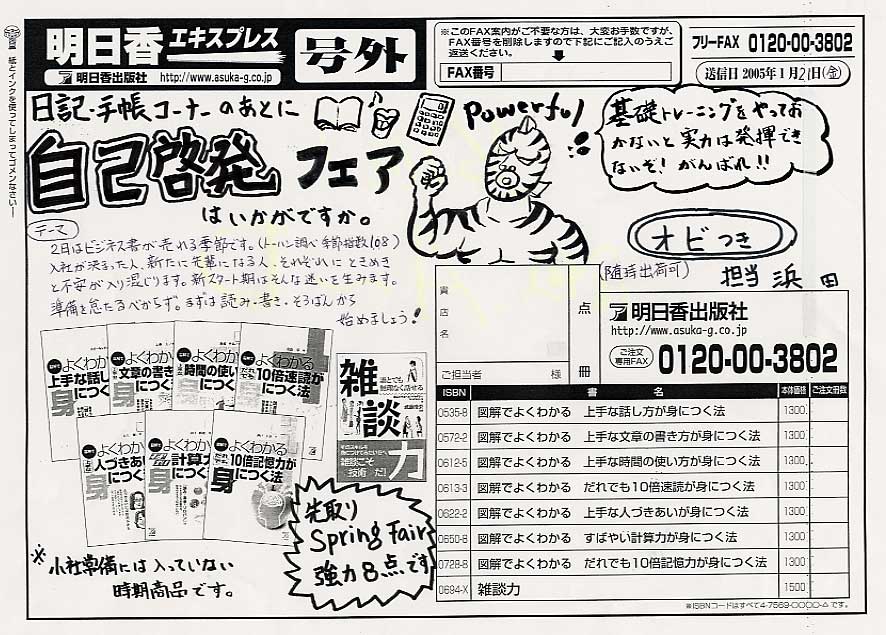 紙とインクを使ってしまってゴメンなさいー
明日香エキスプレス
明日香出版社 http://www.asuka-g.co.jp
号外
※このFAX案内がご不要な方は、大変お手数ですが、
FAX番号を削除しますので下記にご記入のうえご
返送ください。
FAX番号
フリーFAX 0120-00-3802
送信日 2005年1月21日(金)
日記・手帳コーナーのあとに
自己啓発フェア
はいかがですか。
Powerful
基礎トレーニングをやってお
かないと実力は発揮でき
ないぞ! がんばれ!!
オビつき
(随時出荷可)
担当 浜田
テーマ
2月はビジネス書が売れる季節です。(トーハン調べ 季節指数108)
入社が決まった人、新たに先輩になる人、それぞれにときめき
と不安が入り混じります。新スタート期はそんな迷いを生みます。
準備を怠たるべからず。まずは読み・書き・そろばんから
始めましょう!
よくわかる
上手な話し
につ
身
よくわかる
文章の書き
につ
よくわかる
時間の使い
につ
よくわかる
10倍速読が
につく法
よくわかる
人づきあい
につ
身
よくわかる
計算力
につく
身
よくわかる
10倍記憶力が
につく法
身
雑談力
誰とでも
無理なく話せる
雑談こそ
技術だ!
先取り
Spring Fair
強力8点です
※小社常備には入っていない
時期商品です。
貴店名
ご担当者 様
点
冊
明日香出版社
http://www.asuka-g.co.jp
ご注文専用FAX 0120-00-3802
ISBN 書名 本体価格 ご注文冊数
0535-8 図解でよくわかる 上手な話し方が身につく法 1300
0572-2 図解でよくわかる 上手な文章の書き方が身につく法 1300
0612-5 図解でよくわかる 上手な時間の使い方が身につく法 1300
0613-3 図解でよくわかる だれでも10倍速読が身につく法 1300
0622-2 図解でよくわかる 上手な人づきあいが身につく法 1300
0650-8 図解でよくわかる すばやい計算力が身につく法 1300
0728-8 図解でよくわかる だれでも10倍記憶力が身につく法 1300
0694-X 雑談力 1500
※ISBNコードはすべて4-7569-○○○○-△です。